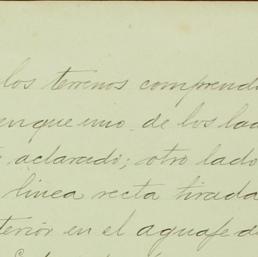 los terrenos comprendi
en que uno de los lad
aclarado; otro lado
línea recta tirada
terior en el aguaje de